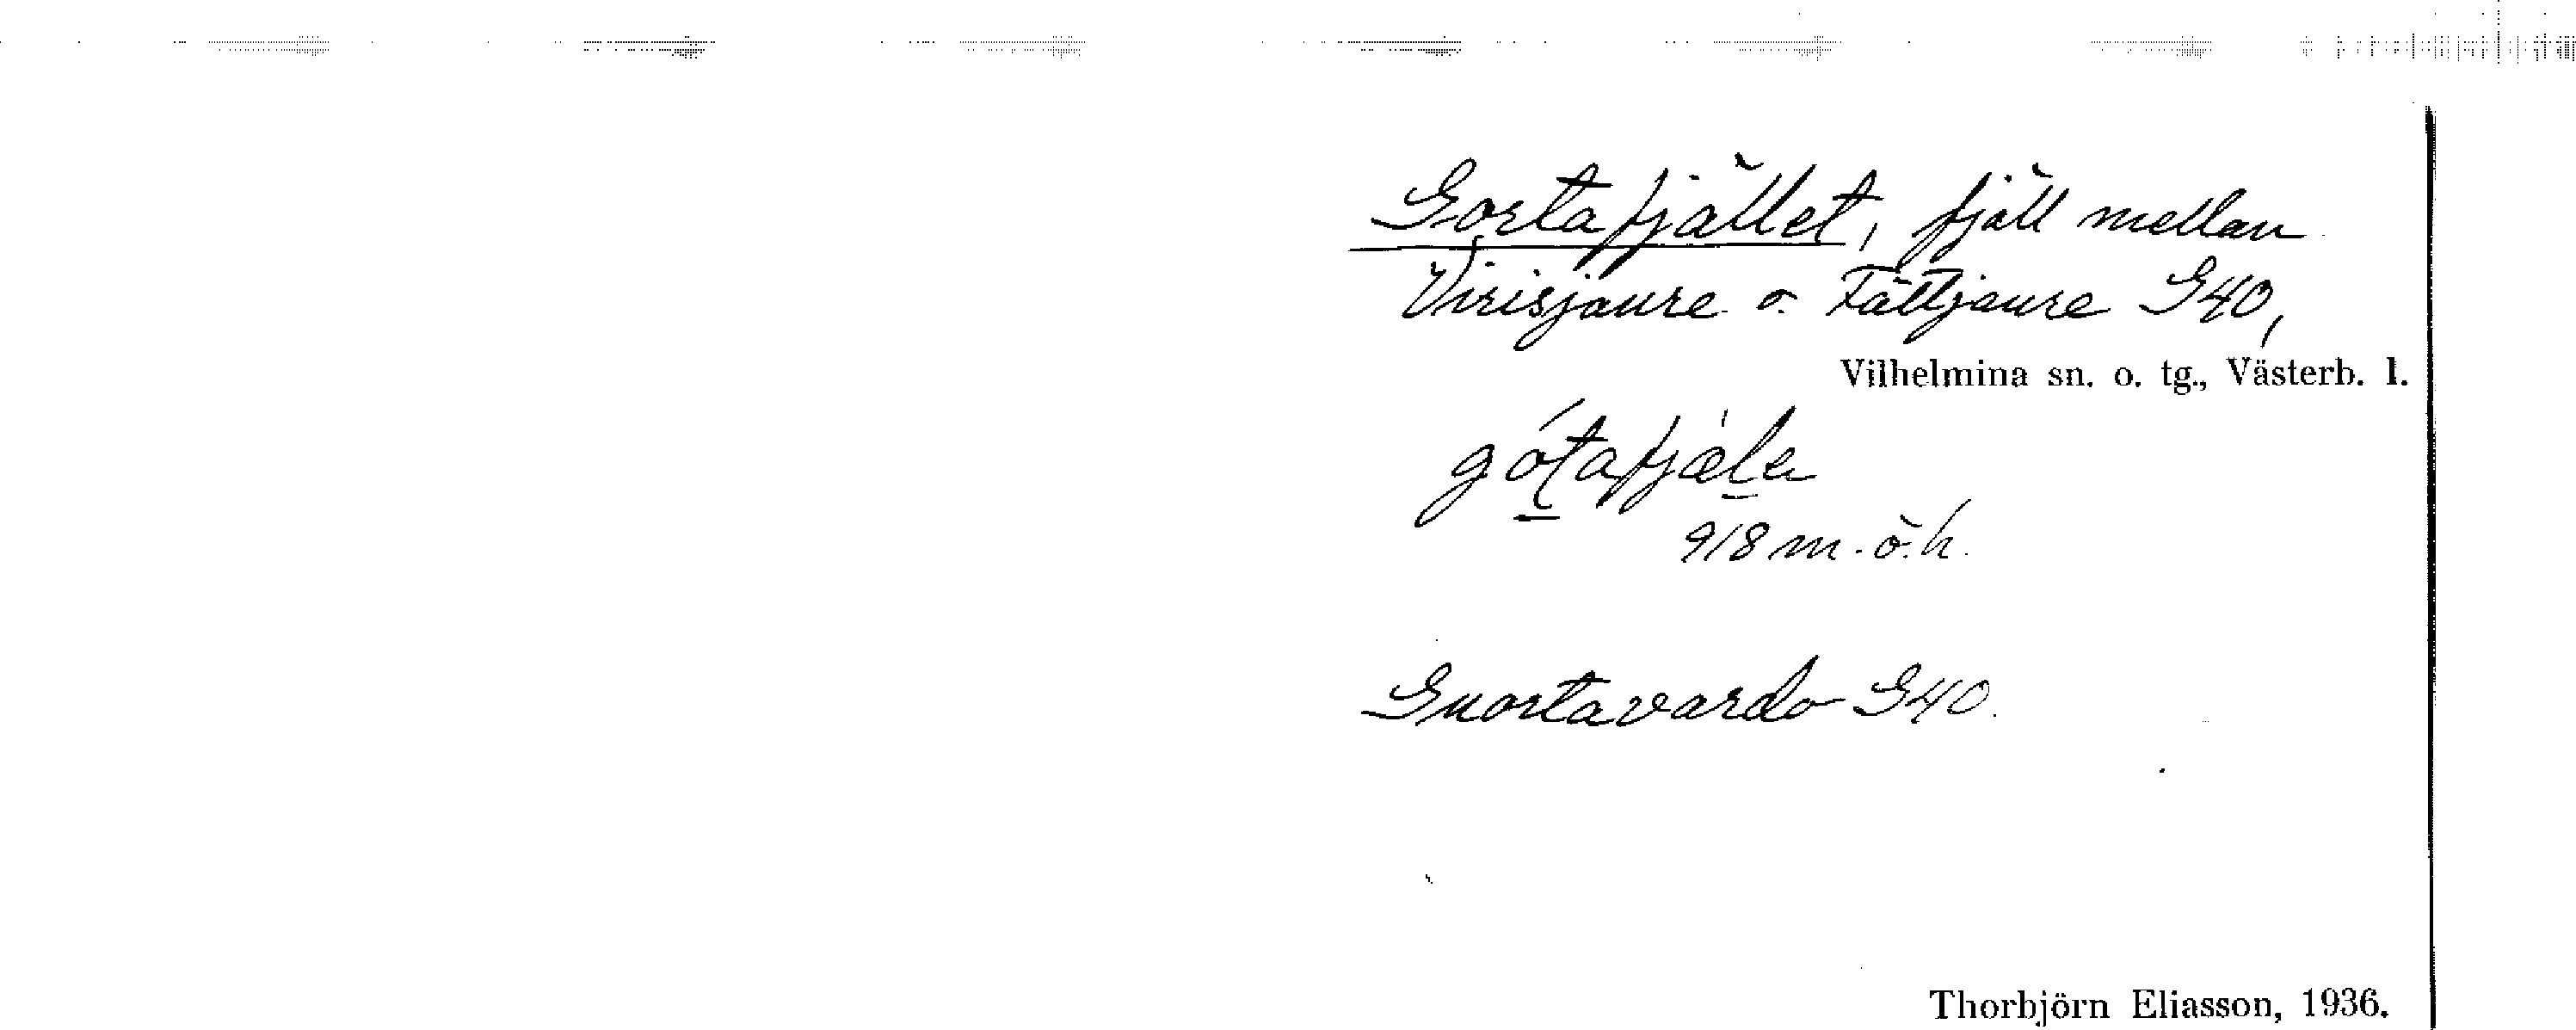 Gortafjället, fjäll mellan
Virisjaure o. Fättjaure G40,
Vilhelmina sn. o. tg., Västerb. l.
918 m. ö. h.
Guortavardo G40.
Thorbjörn Eliasson, 1936.